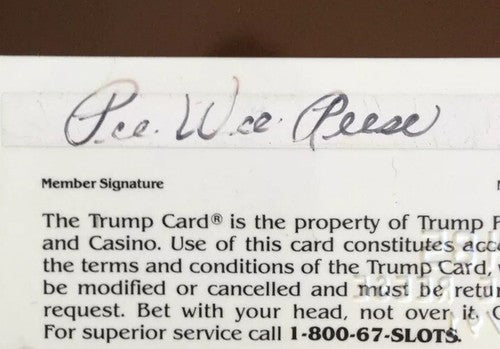 Pee. Wee. Reese
Member Signature
The Trump Card® is the property of Trump
and Casino. Use of this card constitutes
the terms and conditions of the Trump Card,
be modified or cancelled and must be
request. Bet with your head, not over it.
For superior service call 1-800-67-SLOTS.
REESE